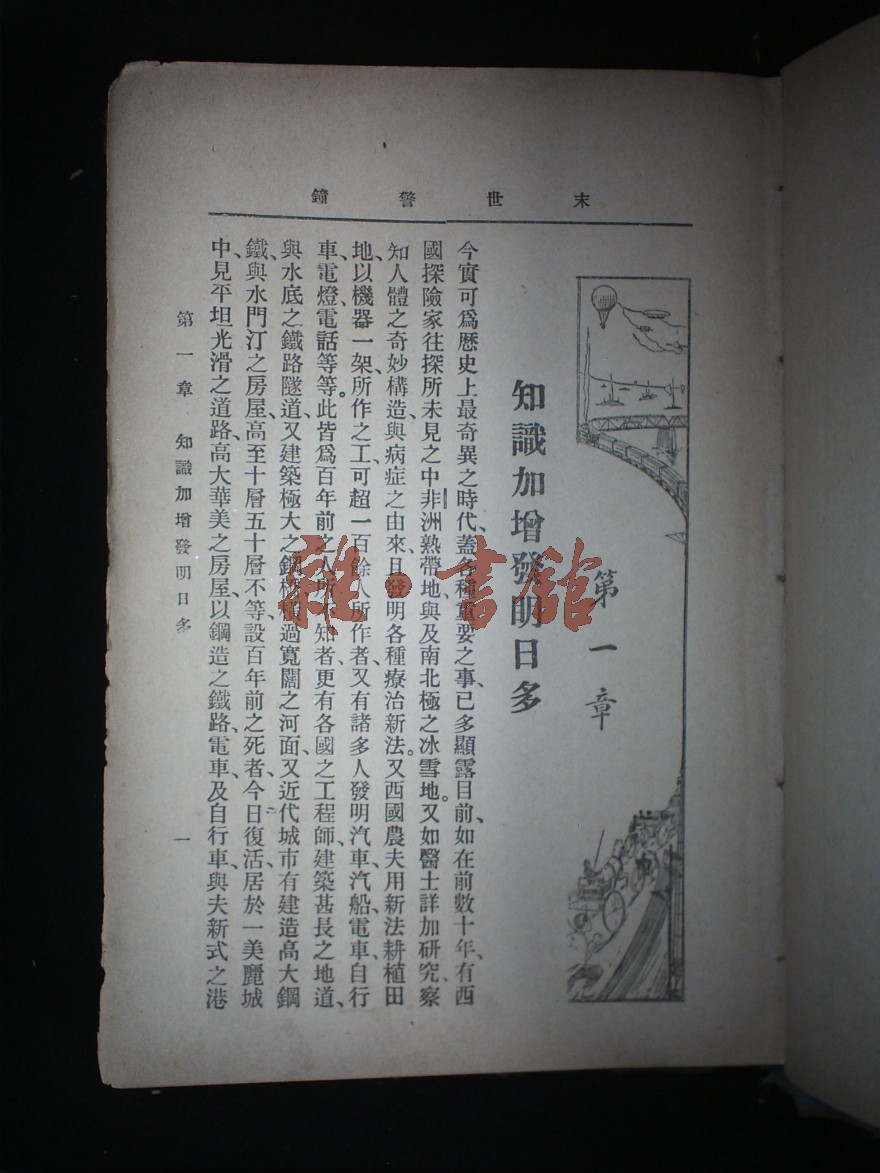 末世警鐘
第一章
知識加增發明日多
今實可爲歷史上最奇異之時代、蓋各種重要之事、已多顯露目前、如在前數十年、有西
國探險家往探所未見之中非洲熱帶地、與及南北極之冰雪地。又如醫士詳加研究、察
知人體之奇妙構造、與病症之由來、且發明各種療治新法。又西國農夫用新法耕植田
地、以機器一架所作之工、可超一百餘人所作者、又有諸多人發明汽車、汽船、電車、自行
車、電燈、電話等等。此皆爲百年前之人所不知者、更有各國之工程師、建築甚長之地道、
與水底之鐵路隧道、又建築極大之鋼橋、橫過寬闊之河面、又近代城市有建造高大鋼
鐵與水門汀之房屋、高至十層五十層不等、設百年前之死者、今日復活、居於一美麗城
中、見平坦光滑之道路、高大華美之房屋、以鋼造之鐵路、電車、及自行車、與夫新式之港
第一章 知識加增發明日多
一
雜·書館